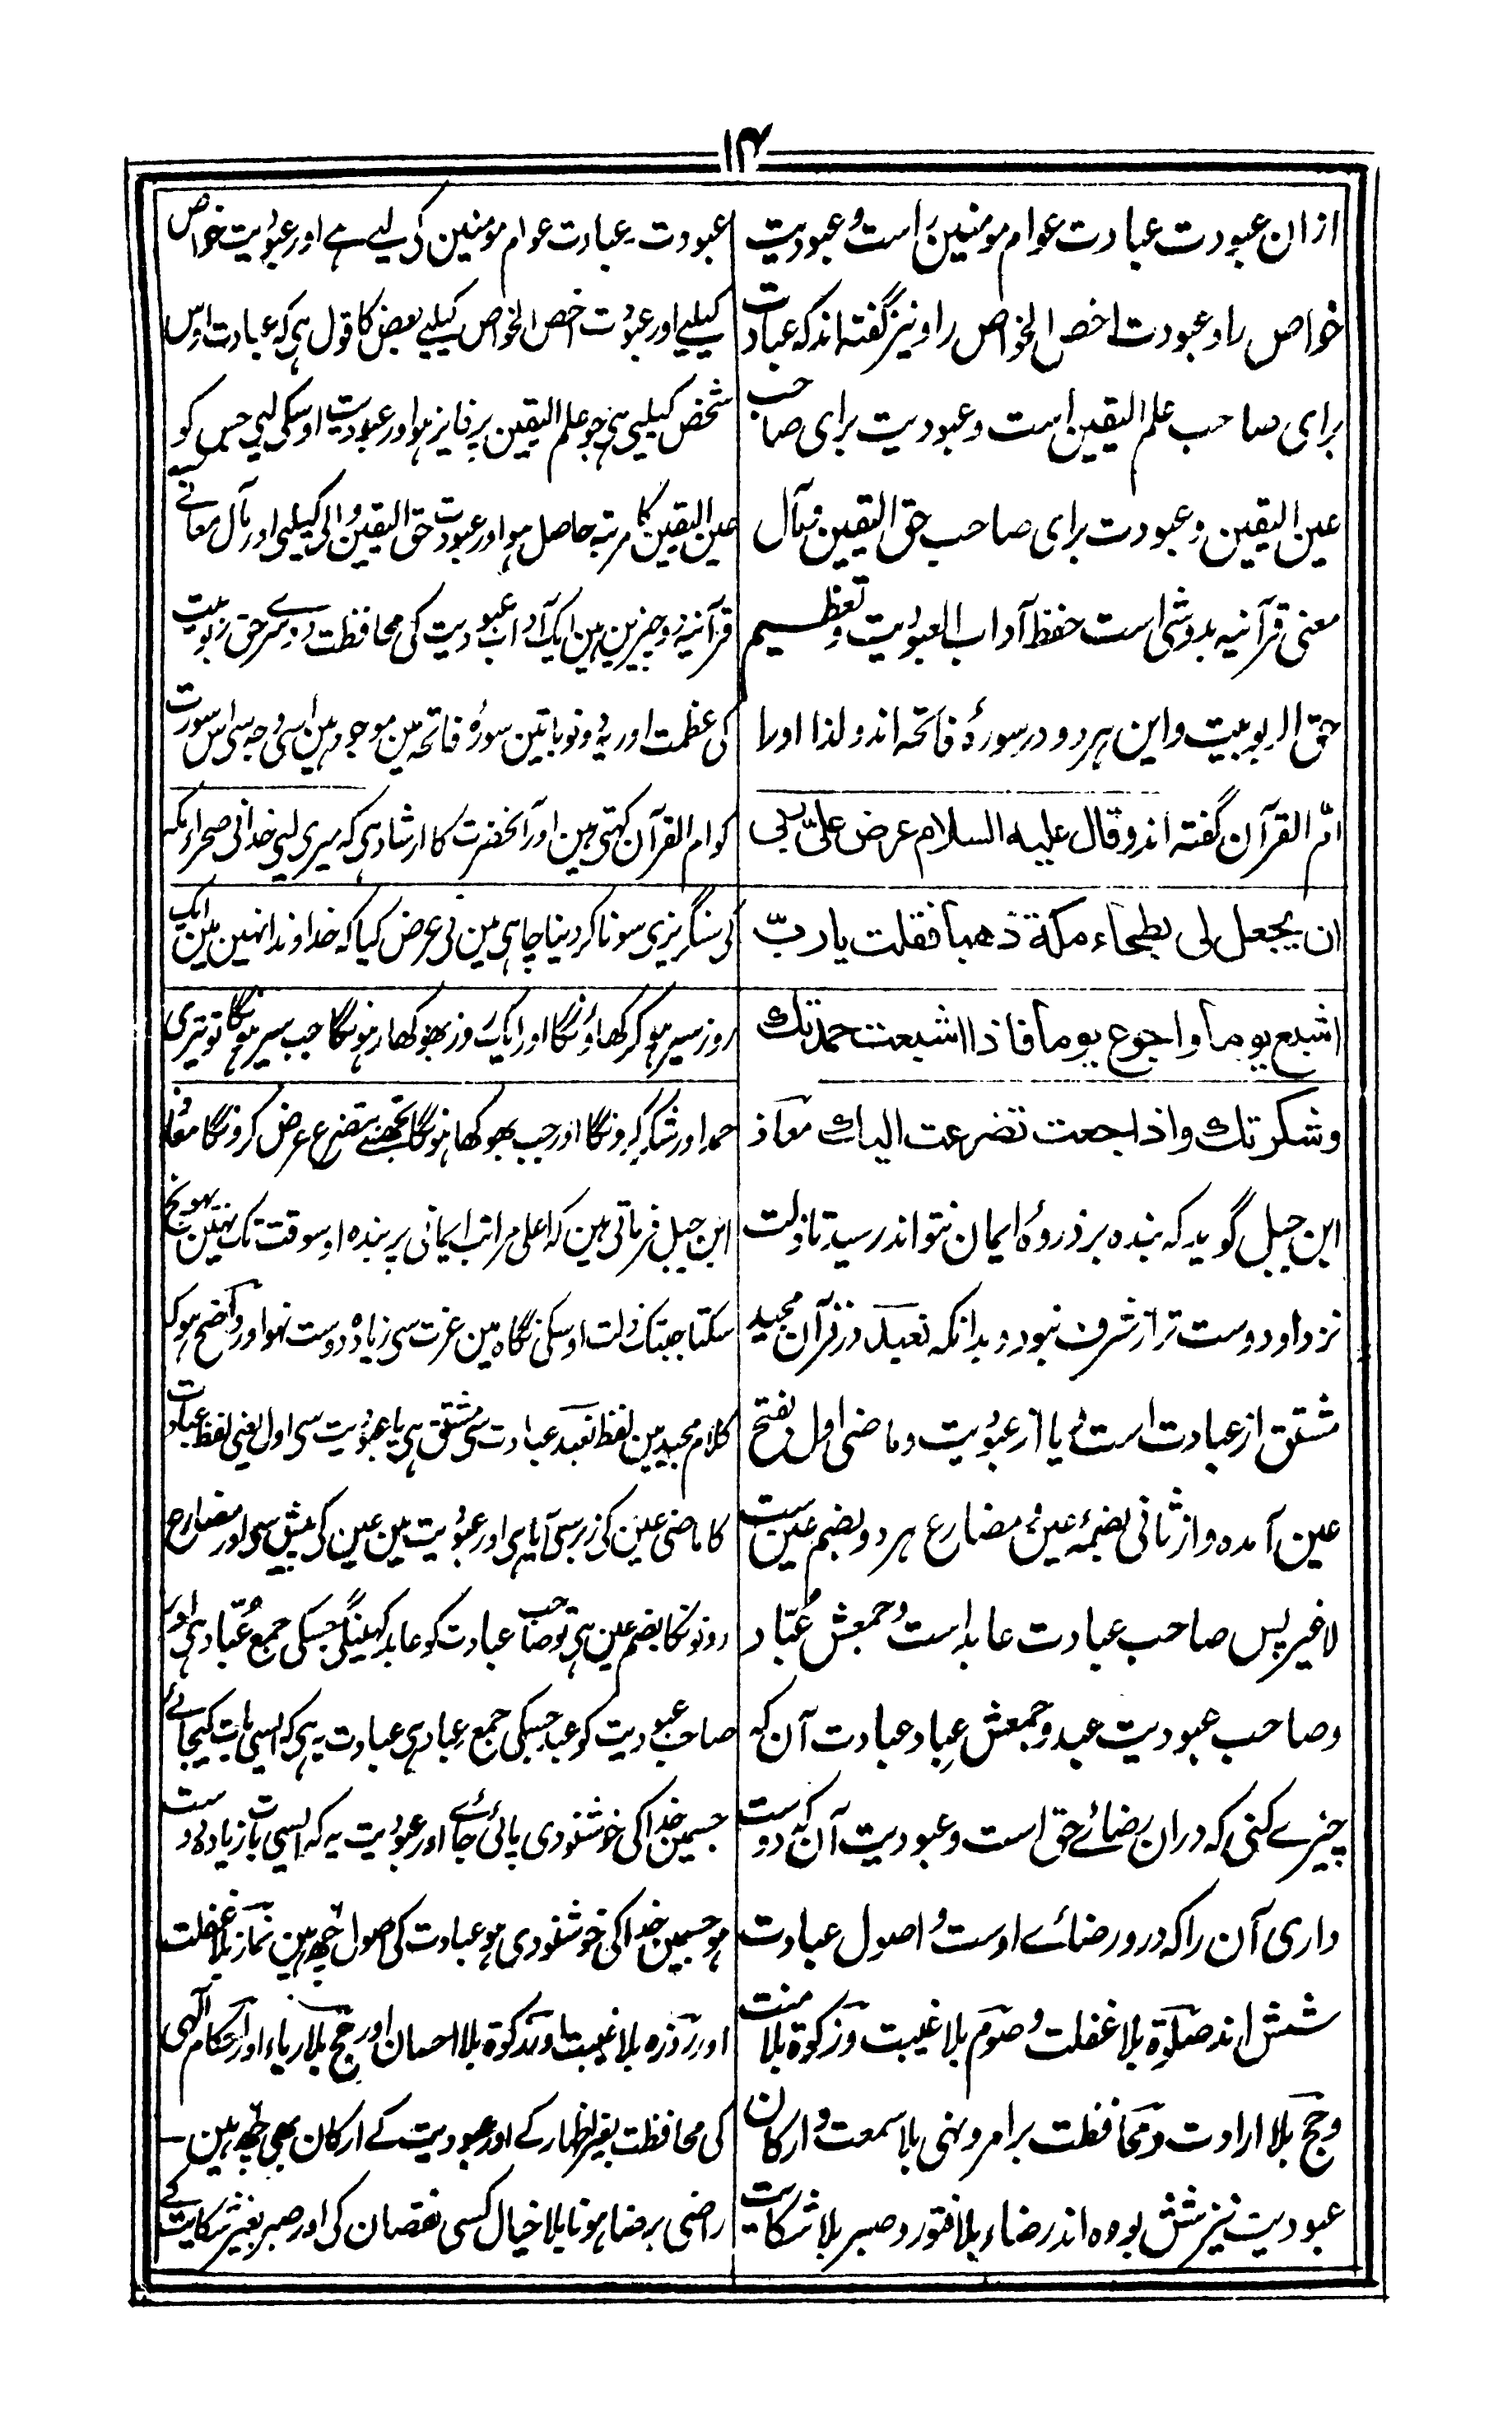 ۱۴
ازان عبودت عبادت عوام مومنین راست و عبودیت
خواص را و عبودت اخص الخواص را و نیز گفته اند که عبادت
برای صاحب علم الیقین است و عبودیت برای صاحب
عین الیقین و عبودت برای صاحب حق الیقین و مآل
معنی قرآنیه بدو شی است حفظ آداب العبودیت و تعظیم
حق الربوبیت و این هر دو در سورهٔ فاتحه اند و لذا او را
امّ القرآن گفته اند و قال علیه السلام عرض علیّ ربی
ان یجعل لی بطحاء مکة ذهباً فقلت یا ربّ
اشبع یوماً و اجوع یوماً فاذا اشبعت حمدتک
و شکرتک و اذا جعت تضرعت الیک معاذ
ابن جبل گوید که بنده بر ذروهٔ ایمان نتواند رسید تا ذلت
نزد او دوست تر از شرف نبود و بدانکه نعبد در قرآن مجید
مشتق از عبادت است و یا از عبودیت و ماضی اول بفتح
عین آمده و از ثانی بضمهٔ عین و مضارع هر دو بضم عین ست
لا غیر پس صاحب عبادت عابد است و جمعش عُبّاد
و صاحب عبودیت عبد و جمعش عِباد عبادت آن که
چیزے کنی که دران رضائے حق است و عبودیت آن که دوست
داری آن را که درو رضائے اوست و اصول عبادت
شش اند صلوٰة بلا غفلت و صوم بلا غیبت و زکوة بلا منت
و حج بلا ارادت و محافظت بر امر و نهی بلا سمعت و ارکان
عبودیت نیز شش بوده اند رضاء بلا فتور و صبر بلا شکایت
عبودت۔ عبادت عوام مومنین کی لیے ہے اور عبودیت خواص
کیلیے اور عبودت اخص الخواص کیلیے بعض کا قول ہی کہ عبادت اوس
شخص کیلیی ہی جو علم الیقین پر فایز ہو اور عبودیت اوسکی لیی جس کو
عین الیقین کا مرتبہ حاصل ہو اور عبودت حق الیقین والی کیلیی اور مآل معانے
قرآنیہ دو چیزین ہین ایک آداب عبودیت کی محافظت دوسرے حق ربوبیت
کی عظمت اور یہ دونو باتین سورهٔ فاتحہ مین موجود ہین اسی وجہ سی اس سورت
کو ام القرآن کہتی ہین اور آنحضرت کا ارشاد ہی کہ میری لیی خدانی صحراء مکہ
کی سنگریزی سونا کر دینا چاہی مین نی عرض کیا کہ خداوندا نہین مین ایک
روز سیر ہو کر کھاؤنگا اور ایک روز بھوکھا رہونگا جب سیر ہونگا تو تیری
حمد اور شکر کرونگا اور جب بھوکھا ہونگا تجھسے بتضرع عرض کرونگا معاذ
ابن جبل فرماتی ہین کہ اعلی مراتب ایمانی پر بندہ اوسوقت تک نہین پہونچ
سکتا جبتک ذلت اوسکی نگاہ مین عزت سی زیادہ دوست نہو اور واضح ہو کہ
کلام مجید مین لفظ نعبد عبادت سی مشتق ہی یا عبودیت سی اول یعنی لفظ عبادت
کا ماضی عین کی زبر سی آیا ہی اور عبودیت مین عین کی پیش سی اور مضارع
دونونکا بضم عین ہی تو صاحب عبادت کو عابد کہینگی جسکی جمع عُبّاد ہی اور
صاحب عبودیت کو عبد جسکی جمع عِباد ہی عبادت یہ ہی کہ ایسی بات کیجائے
جسمین خدا کی خوشنودی پائی جائے اور عبودیت یہ کہ ایسی بات زیادہ دوست
ہو جسمین خدا کی خوشنودی ہو عبادت کی اصول چھ ہین نماز بلا غفلت
اور روزہ بلا غیبت اور زکوة بلا احسان اور حج بلا ریاء اور احکام الٰہی
کی محافظت بغیر اظہار کے اور عبودیت کے ارکان بھی چھ ہین۔
راضی برضا ہونا بلا خیال کسی نقصان کی اور صبر بغیر شکایت کے